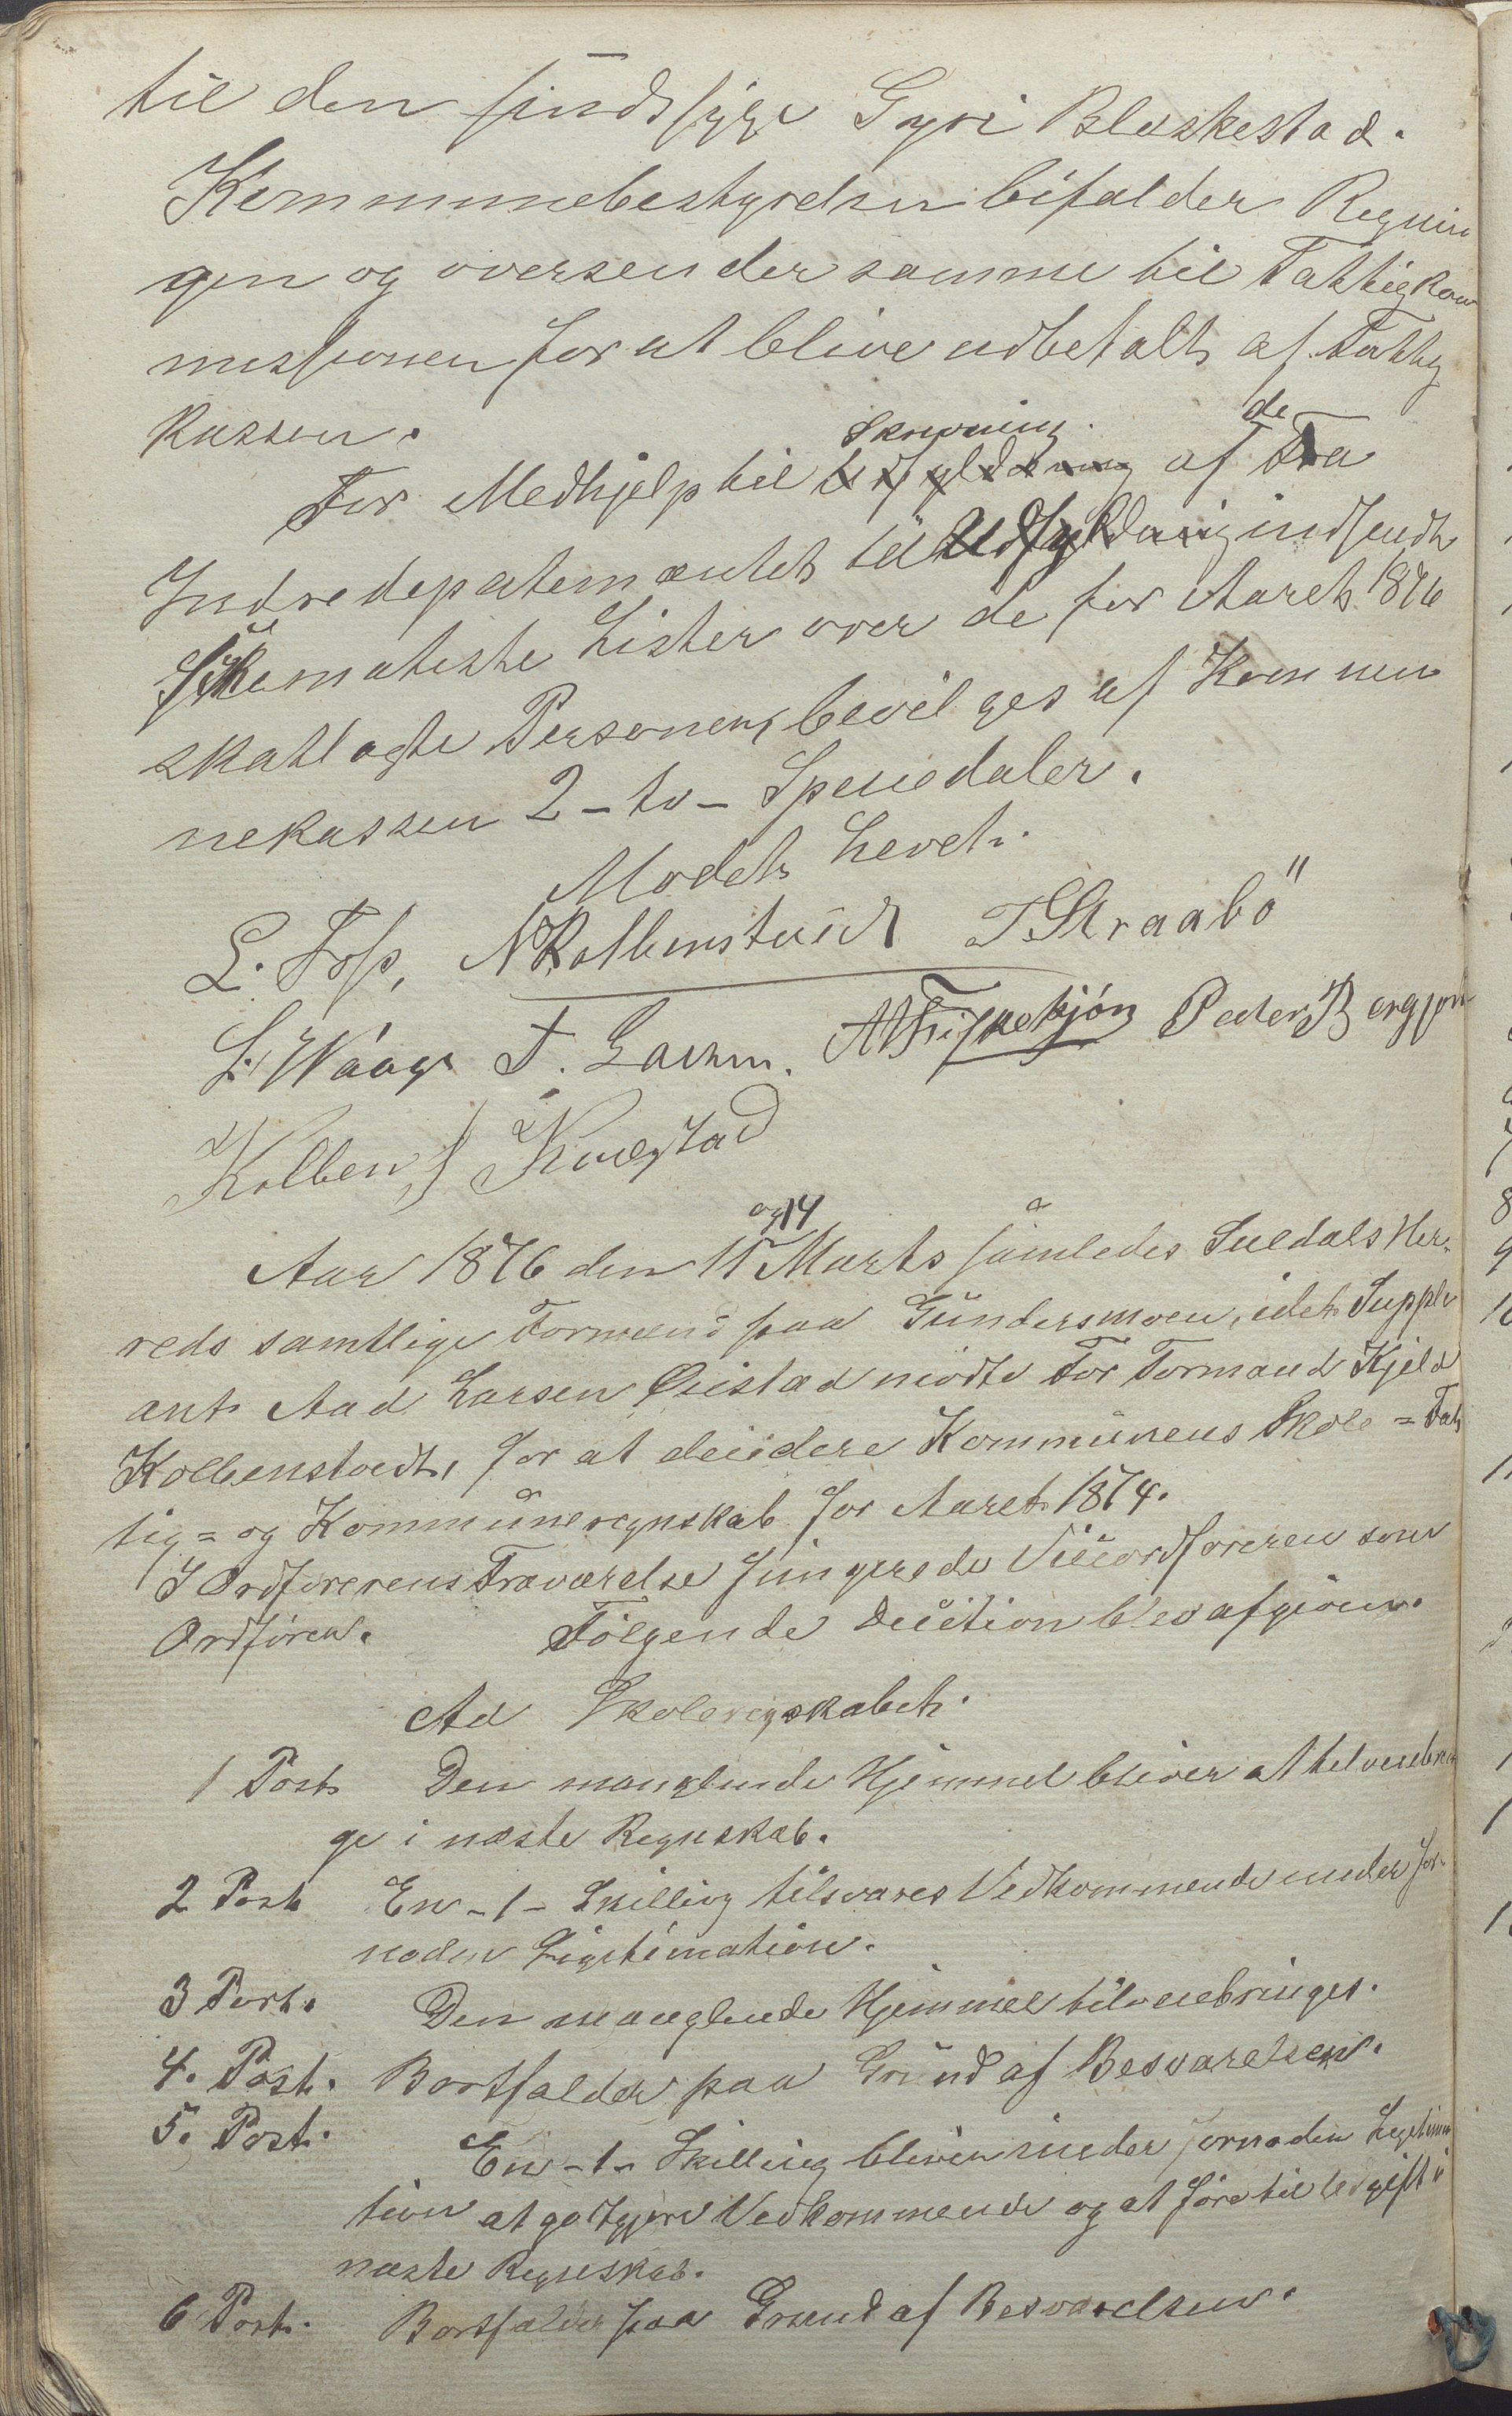 til den sindssyge Gyri Bleskestad.
Kommunebestyrelsen bifalder Regnin
gen og oversender samme til Fattigkom
missionen for at blive udbetalt af Fattig
kassen.
For Medhjelp til Skrivning af de fra
Indredepatementet til Udfyldning indsendte
Skematiske Lister over de for Aaret 1876
skatlagte Personer, bevilges af Kommu
nekassen 2 - to - Speciedaler.
Modet hevet.
L. Foss, N Kolbenstveit T Straabö
L. Waage T. Larsen. Peder Bergjon
Kolben J Kvæstad
Aar 1876 den 11 og 14 Marts samledes Suldals Her-
reds samtlige Formænd paa Gundersmoen, idet Supple
ant Aad Larsen Qvistad mödte for Formand Kjeld
Kolbenstvedt, for at decidere Kommunens Skole = Fat
tig = og Kommuneregnskab for Aaret 1874.
I Ordförerens Fraværelse fungerede Viceordföreren som
Ordförer. Fölgende Decition blev afgiven.
Ad Skoleregskabet.
1 Post Den manglende Hjemmel bliver at tilveiebrin
ge i næste Regnskab.
2 Post En - 1 - Skilling tilsvares Vedkommende under for
noden Ligitimation.
3 Post. Den manglende Hjemmel tilveiebringes.
4. Post. Bortfalder paa Grund af Besvarelsen.
5. Post. En - 1 - Skilling bliver under fornoden Legitima
tion at godtgjøre Vedkommende og at före til Udgift i
næste Regnskab.
6 Post. Bortfalder paa Grund af Besvarelsen.